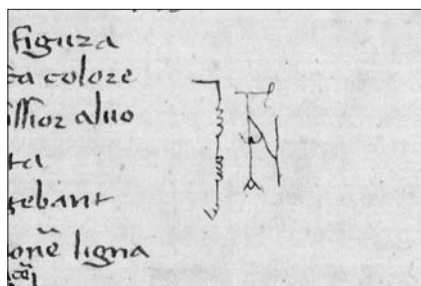 figura
colore
illior aluo
ta
gebant
onē ligna